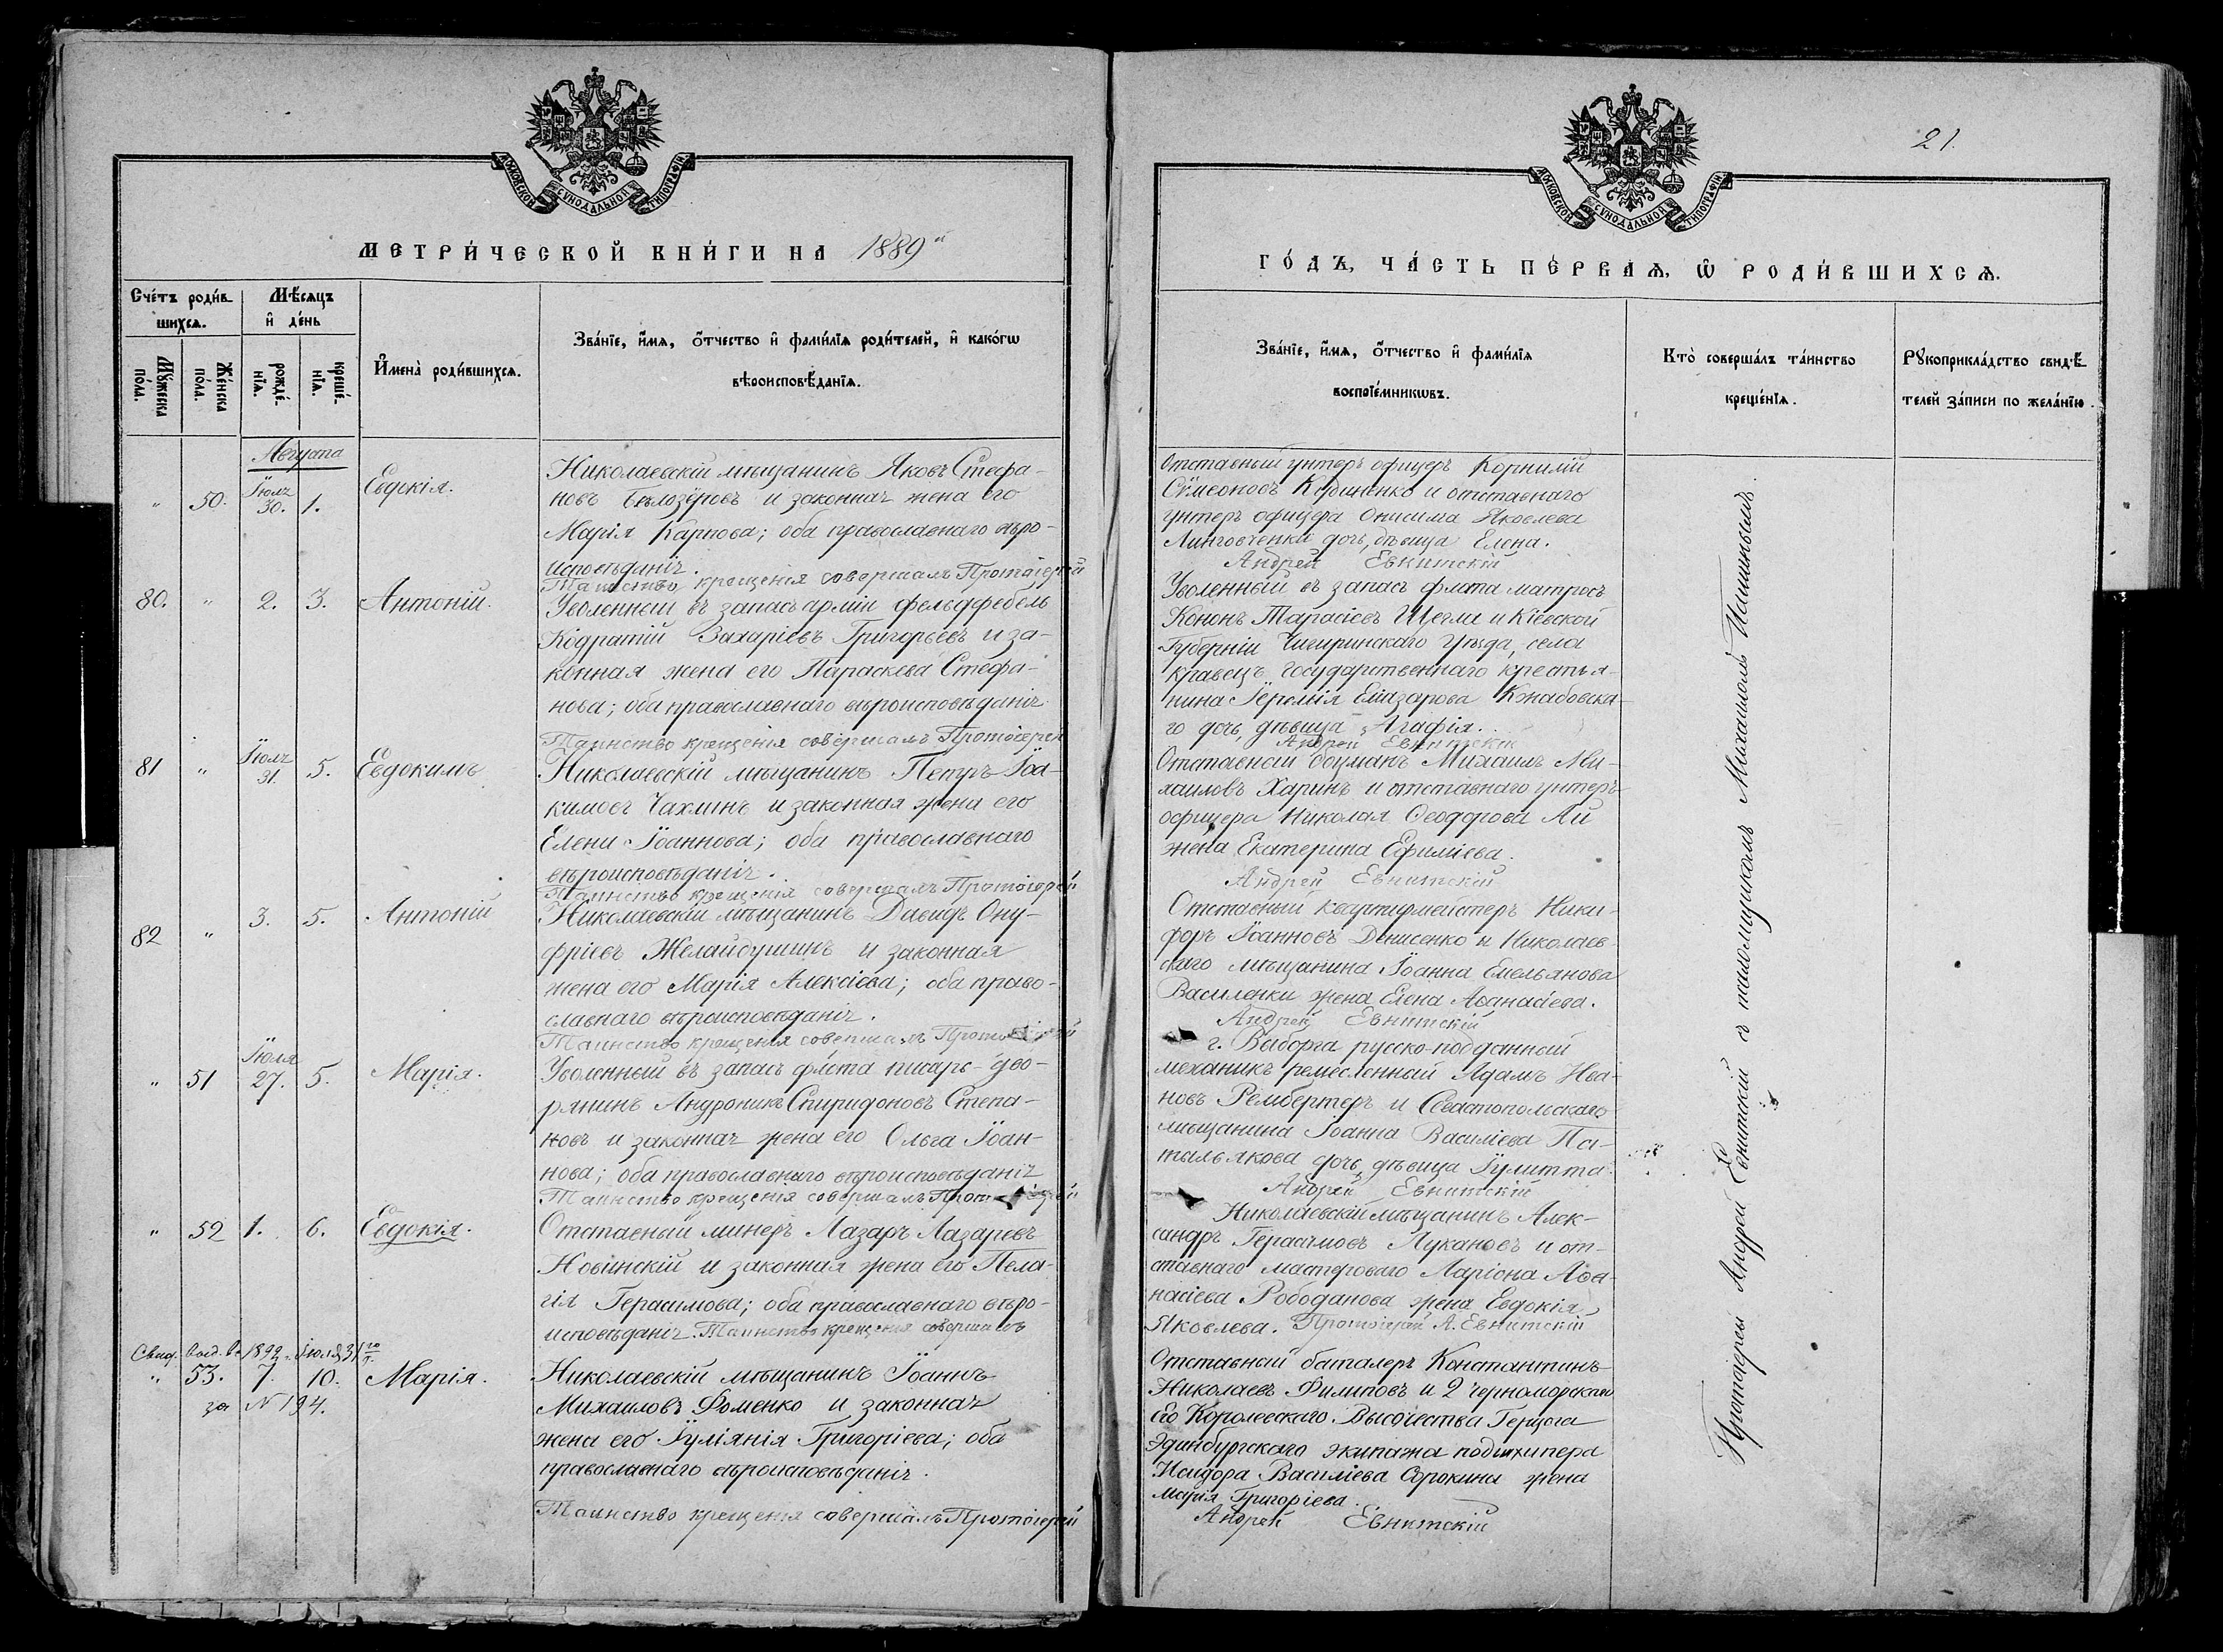 МОСКОВСКОЙ СѴНОДАЛЬНОЙ ТИПОГРАФІИ
МЕТРИ́ЧЕСКОЙ КНИ́ГИ НА 1889й
Сче́тъ роди́в-
шихсѧ.
Мѣ́сѧцъ
и҆ де́нь
Мꙋ́жеска
по́ла.
Же́нска
по́ла.
рожде́-
нїѧ.
креще́-
нїѧ.
И҆мена̀ роди́вшихсѧ.
Зва́нїе, и҆́мѧ, ѻ҆́тчество и҆ фами́лїѧ роди́телей, и҆ како́гѡ
вѣроисповѣ́данїѧ.
Августа
" 50. Іюля 30. 1. Евдокія.
Николаевскій мѣщанинъ Яковъ Стефа-
новъ Бѣлозеровъ и законная жена его
Марія Карпова; оба православнаго вѣро-
исповѣданія.
Таинство крещенія совершалъ Протоіерей
80. " 2. 3. Антоній.
Уволенный въ запасъ арміи фельдфебель
Кодратій Захаріевъ Григорьевъ и за-
конная жена его Параскева Стефа-
нова; оба православнаго вѣроисповѣданія
Таинство крещенія совершалъ Протоіерей
81 " Іюля 31. 5. Евдокимъ
Николаевскій мѣщанинъ Петръ Іоа-
кимовъ Чахминъ и законная жена его
Елена Іоаннова; оба православнаго
вѣроисповѣданія.
Таинство крещенія совершалъ Протоіерей
82 " 3. 5. Антоній
Николаевскій мѣщанинъ Давидъ Ону-
фріевъ Желайбушинъ и законная
жена его Марія Алексіева; оба право-
славнаго вѣроисповѣданія.
Таинство крещенія совершалъ Протоіерей
" 51 Іюля 27. 5. Марія.
Уволенный въ запасъ флота писарь-дво-
рянинъ Андроникъ Спиридоновъ Степа-
новъ и законная жена его Ольга Іоан-
нова; оба православнаго вѣроисповѣданія
Таинство крещенія совершалъ Протоіерей
" 52 1. 6. Евдокія.
Отставный минеръ Лазарь Лазаревъ
Новинскій и законная жена его Пела-
гія Герасимова; оба православнаго вѣро-
исповѣданія. Таинство крещенія совершалъ
Свид. выд. въ 1892 г. Іюля 31 го
" 53. 7. 10. Марія.
за N 194.
Николаевскій мѣщанинъ Іоаннъ
Михаиловъ Фоменко и законная
жена его Іуліянія Григоріева; оба
православнаго вѣроисповѣданія.
Таинство крещенія совершалъ Протоіерей
21.
МОСКОВСКОЙ СѴНОДАЛЬНОЙ ТИПОГРАФІИ
ГО́ДЪ, ЧА́СТЬ ПЕ́РВАѦ, Ѽ РОДИ́ВШИХСѦ.
Зва́нїе, и҆́мѧ, ѻ҆́тчество и҆ фами́лїѧ
воспрїе́мникѡвъ.
Кто̀ соверша́лъ та́инство
креще́нїѧ.
Рꙋкоприкла́дство свидѣ́-
телей за́писи по жела́нїю.
Отставный унтеръ офицеръ Корнилій
Сѵмеоновъ Кубиненко и отставнаго
унтеръ офицера Онисима Яковлева
Линговченки дочь, дѣвица Елена.
Андрей Евнитскій
Уволенный въ запасъ флота матросъ
Кононъ Тарасіевъ Щегла и Кіевской
Губерніи Чигиринскаго Уѣзда, села
Кравецъ государственнаго крестья-
нина Іереміи Елизарова Кжабовска-
го дочь, дѣвица Агафія.
Андрей Евнитскій
Отставной боцманъ Михаилъ Ми-
хаиловъ Харинъ и отставнаго унтеръ-
офицера Николая Ѳеодорова Ай
жена Екатерина Ефиміева.
Андрей Евнитскій
Отставный квартирмейстеръ Ники-
форъ Іоанновъ Денисенко и Николаев-
скаго мѣщанина Іоанна Емельянова
Василенки жена Елена Аѳанасіева.
Андрей Евнитскій
г. Выборга русско-подданный
механикъ ремесленный Адамъ Ива-
новъ Рембертеръ и Севастопольскаго
мѣщанина Іоанна Василіева Па-
тылькова дочь, дѣвица Іулитта.
Андрей Евнитскій
Николаевскій мѣщанинъ Алек-
сандръ Герасимовъ Лукановъ и от-
ставнаго мастероваго Ларіона Аѳа-
насіева Рободанова жена Евдокія
Яковлева. Протоіерей А. Евнитскій
Отставный баталеръ Константинъ
Николаевъ Филиповъ и 2 черноморскаго
Его Королевскаго Высочества Герцога
Эдинбургскаго экипажа подшкипера
Исидора Василіева Сорокина жена
Марія Григоріева.
Андрей Евнитскій
Протоіерей Андрей Евнитскій съ псаломщикомъ Михаиломъ